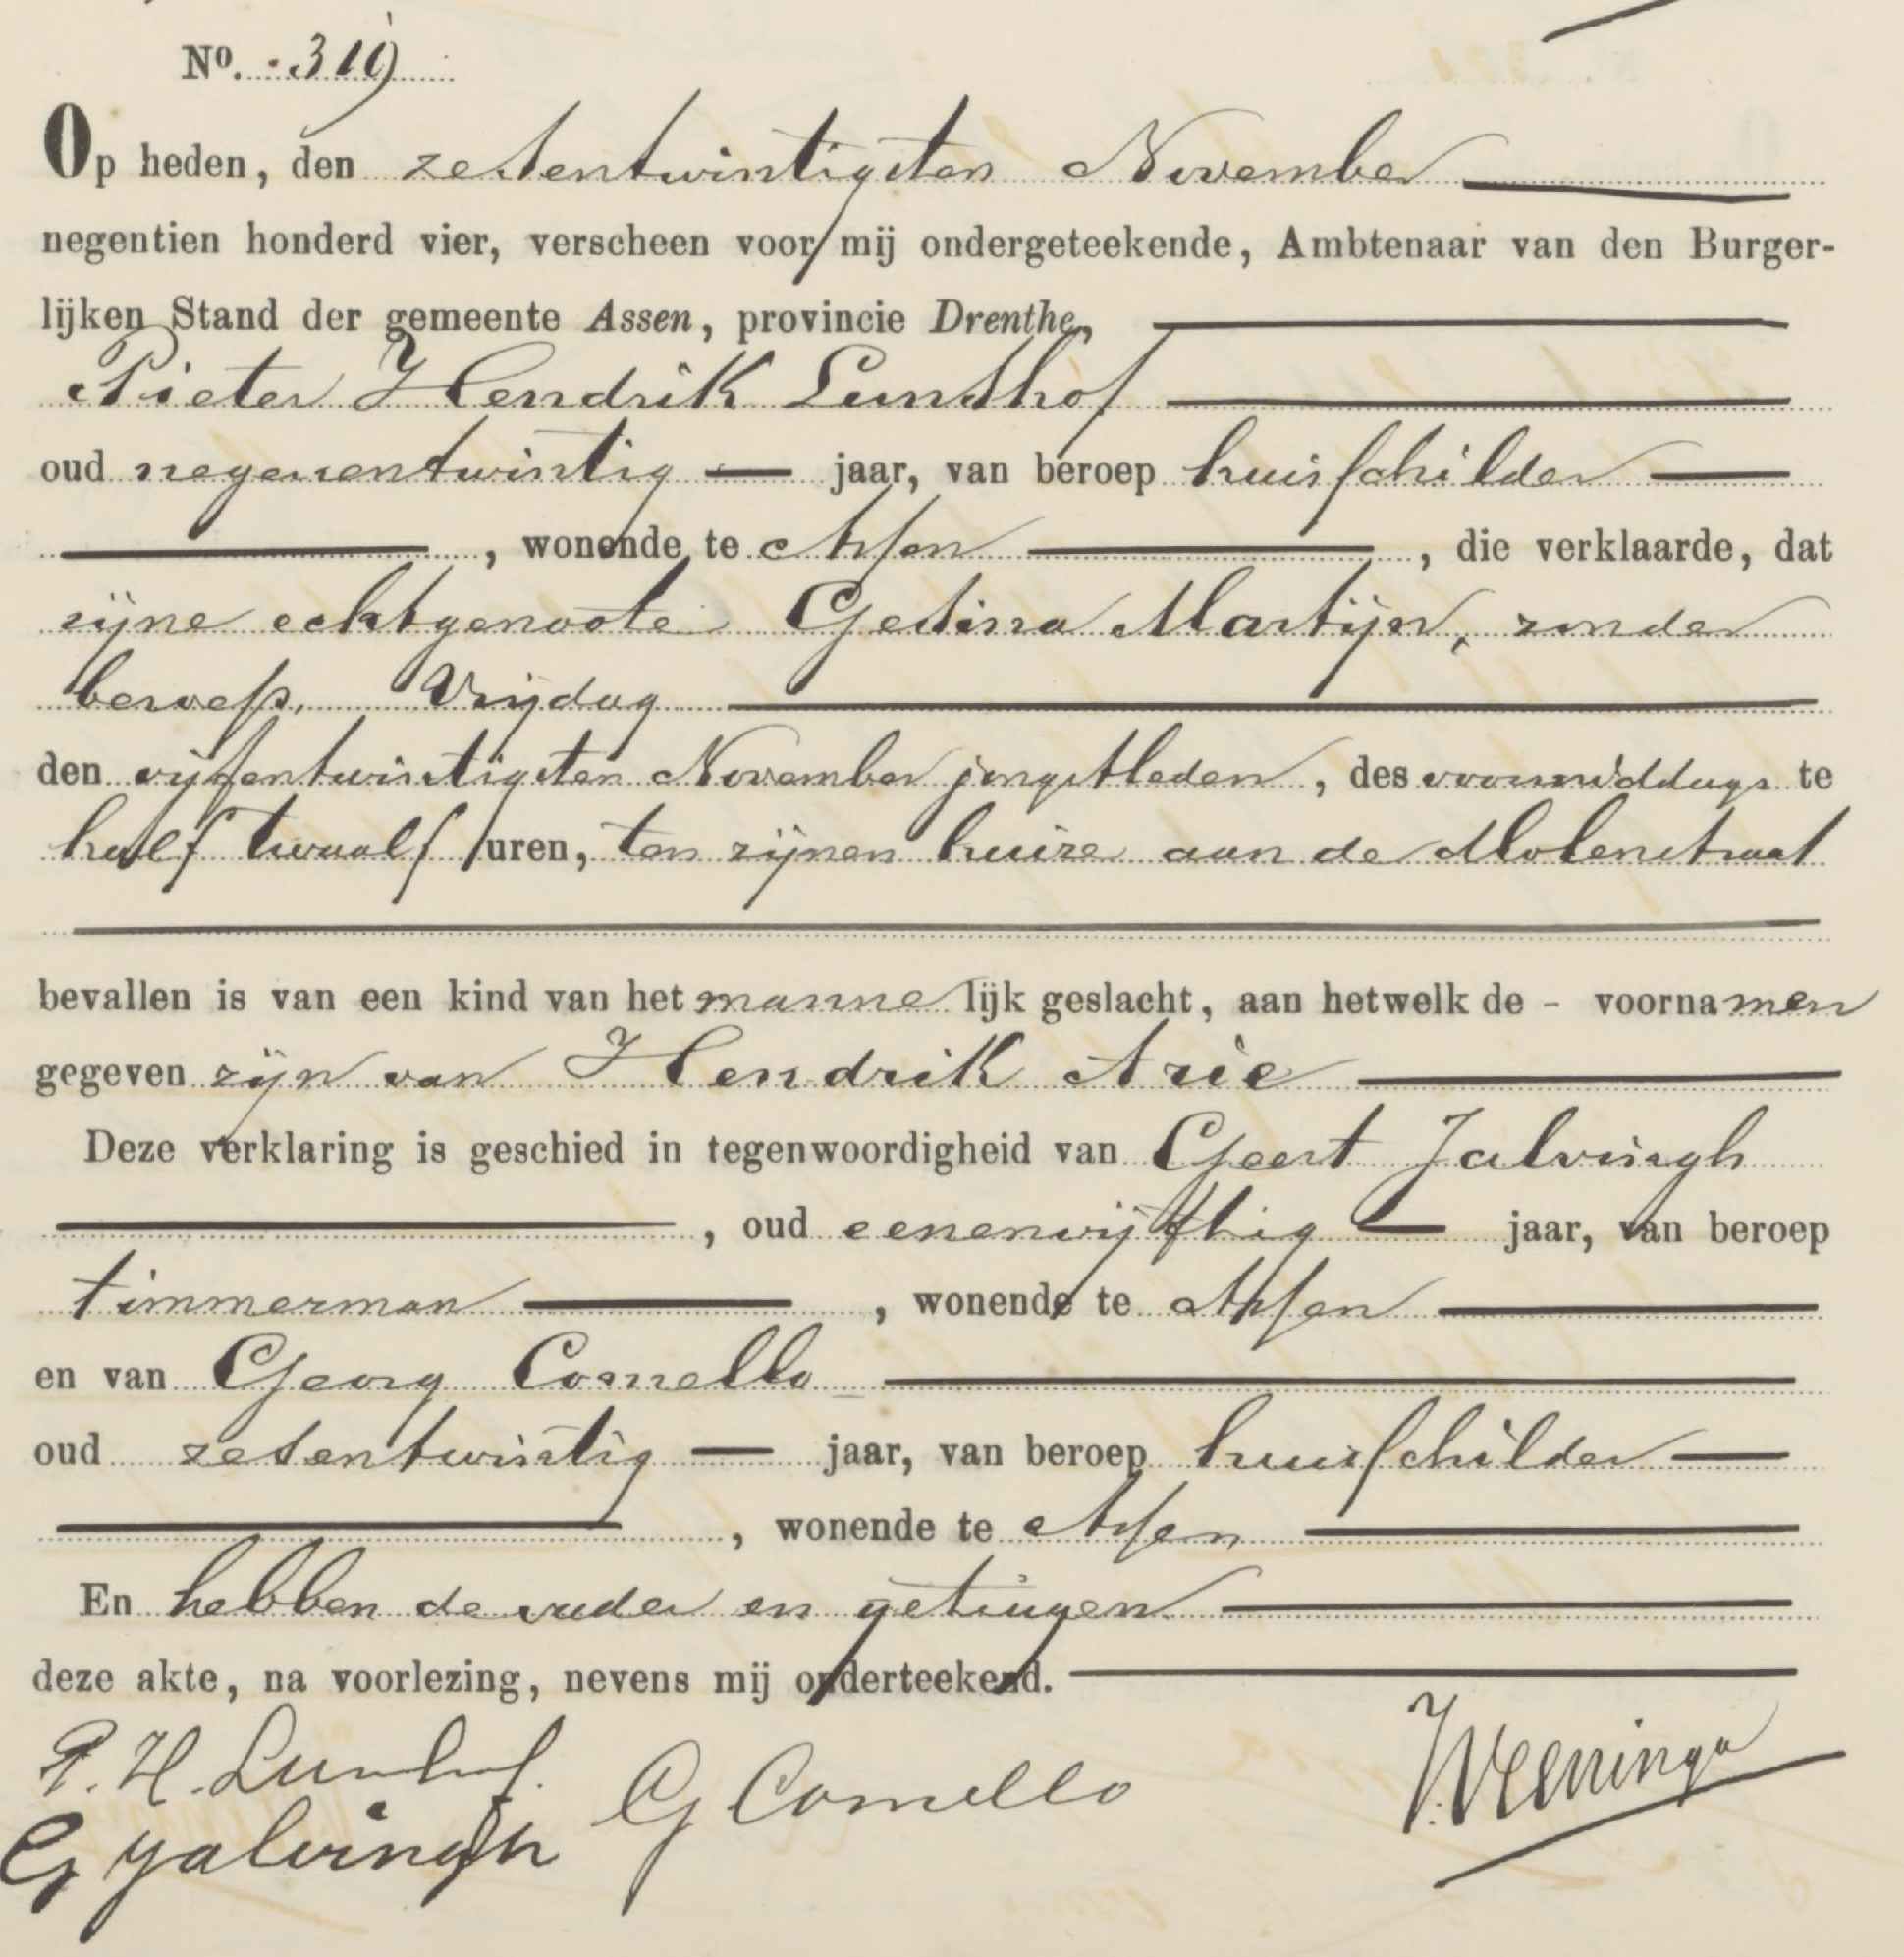 No. 319
Op heden, den zesentwintigsten November
negentien honderd vier, verscheen voor mij ondergeteekende, Ambtenaar van den Burger-
lijken Stand der gemeente Assen, provincie Drenthe,
Pieter Hendrik Lunshof
oud negenentwintig jaar, van beroep huisschilder
, wonende te Assen, die verklaarde, dat
zijne echtgenoote Gesina Martijn, zonder
beroep, Vrijdag
den vijfentwintigsten November jongstleden, des voormiddags te
half twaalf uren, ten zijnen huize aan de Molenstraat
bevallen is van een kind van het mannelijk geslacht, aan hetwelk de - voornamen
gegeven zijn van Hendrik Arie
Deze verklaring is geschied in tegenwoordigheid van Geert Jalvingh
, oud eenenvijftig jaar, van beroep
timmerman, wonende te Assen
en van Georg Comello
oud zesentwintig jaar, van beroep huisschilder
, wonende te Assen
En hebben de vader en getuigen
deze akte, na voorlezing, nevens mij onderteekend.
P. H. Lunshof. G Comello
G Jalvingh